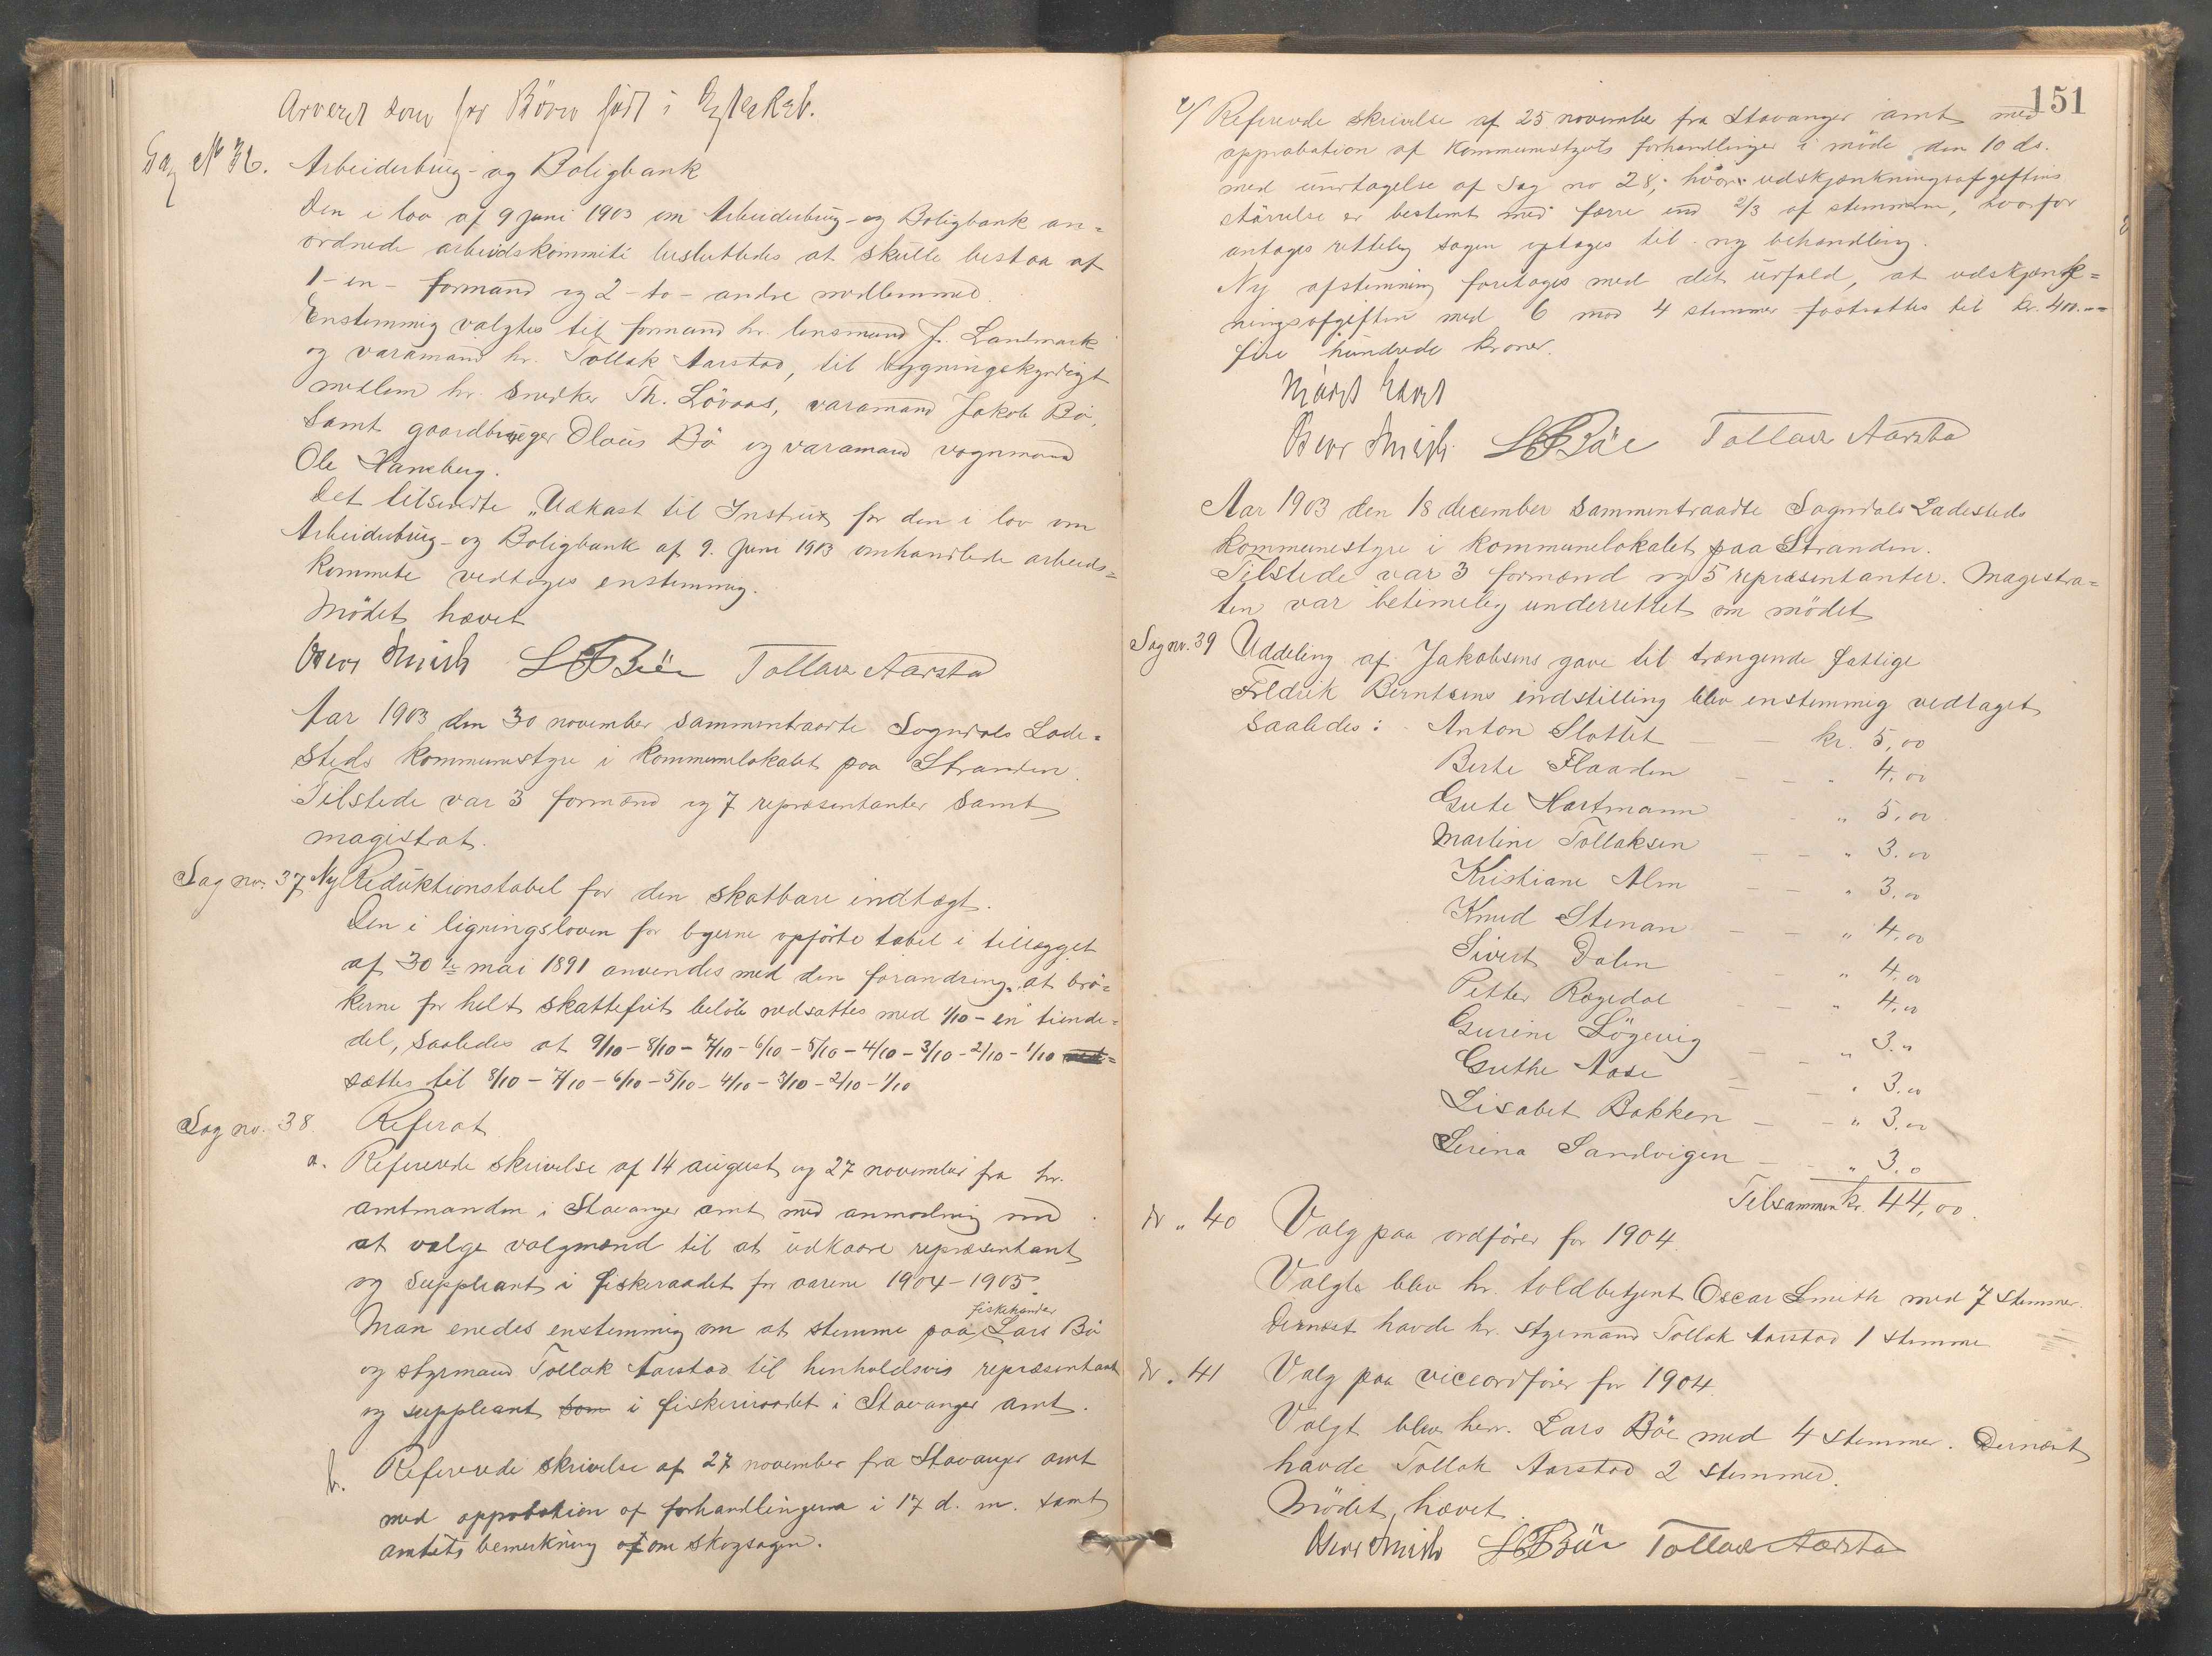 Arveret som for Börn födt i Egteskab.
Sag No 36. Arbeiderbrug- og Boligbank
Den i lov af 9 juni 1903 om Arbeiderbrug- og Boligbank an=
ordnede arbeidskommité besluttedes at skulle bestaa af
1- en - formand og 2 - to - andre medlemmer.
Enstemmig valgtes til formand hr. lensmand J. Landmark
og varamand hr. Tollak Aarstad, til bygningskyndigt
medlem hr. snedker Th. Lövaas, varamand Jakob Bö,
samt gaardbruger Olaus Bö og varamand vognmand
Ole Haneberg.
Det tilsendte „Udkast til Instrux for den i lov om
Arbeiderbrug- og Boligbank af 9. juni 1903 omhandlede arbeids=
kommite vedtoges enstemmig.
Mödet hævet
Oscar Smith LBBöe Tollak Aarstad
Aar 1903 den 30 november sammentraadte Sogndals Lade=
steds kommunestyre i kommunelokalet paa Stranden.
Tilstede var 3 formænd og 7 repræsentanter samt
magistrat.
Sag no. 37. Ny Reduktionstabel for den skatbare indtægt.
Den i ligningsloven for byerne opförte tabel i tillægget
af 30te mai 1891 anvendes med den forandring, at brö=
kerne for helt skattefrit belöb nedsættes med 1/10 - en tiende=
del, saaledes at 9/10 - 8/10 - 7/10 - 6/10 - 5/10 - 4/10 - 3/10 - 2/10 - 1/10 ned=
sættes til 8/10 - 7/10 - 6/10 - 5/10 - 4/10 - 3/10 - 2/10 - 1/10
Sag no. 38. Referat
a. Refererede skrivelse af 14 august og 27 november fra hr.
amtmanden i Stavanger amt med anmodning om
at vælge valgmænd til at udkaare repræsentant
og suppleant i fiskeraadet for aarene 1904-1905.
fiskehandler
Man enedes enstemmig om at stemme paa Lars Bö
og styrmand Tollak Aarstad til henholdsvis repræsentant
og suppleant som i fiskeriraadet i Stavanger amt.
b. Refererede skrivelse af 27 november fra Stavanger amt
med approbation af forhandlingerne i 17 d. m. samt
amtets bemerkning af om skogsagen.
151
c/ Refererede skrivelse af 25 november fra Stavanger amt med
approbation af kommunestyrets forhandlinger i möde den 10 ds.
med undtagelse af Sag no 28, hvor udskjænkningsafgiftens
störrelse er bestemt med færre end 2/3 af stemmerne, hvorfor
antages rettelig sagen optages til ny behandling.
Ny afstemning foretoges med det udfald, at udskjænk=
ningsafgiften med 6 mod 4 stemmer fastsattes til kr. 400.--
fire hundrede kroner.
Mödet hævet
Oscar Smith LBBöe Tollak Aarstad
Aar 1903 den 18 december sammentraadte Sogndals Ladesteds
kommunestyre i kommunelokalet paa Stranden.
Tilstede var 3 formænd og 5 repræsentanter. Magistra=
ten var betimelig underrettet om mödet
Sag no. 39 Uddeling af Jakobsens gave til trængende fattige
Fredrik Berntsens indstilling blev enstemmig vedtaget
saaledes: Anton Slottet — — kr. 5,00
Berte Flaaden — — „ 4,00
Gute Hartmann - „ 5,00
Martine Tollaksen — — „ 3.00
Kristiane Alm — — „ 3,00
Knud Stenan — — „ 4,00
Sivert Dalen - „ 4,00
Petter Rægedal — — „ 4,00
Gurine Lögevig — — „ 3.„
Guthe Aase — — „ 3.00
Lisabet Bakken — — „ 3.00
Serina Sandvigen — — „ 3.0
Tilsammen kr. 44,00.
Nr „ 40 Valg paa ordförer for 1904.
Valgte blev hr. toldbetjent Oscar Smith med 7 stemmer.
Dernæst havde hr. styrmand Tollak Aarstad 1 stemme
Nr. 41 Valg paa viceordförer for 1904.
Valgt blev herr. Lars Böe med 4 stemmer. Dernæst
havde Tollak Aarstad 2 stemmer.
Mödet hævet.
Oscar Smith LBBöe Tollak Aarstad